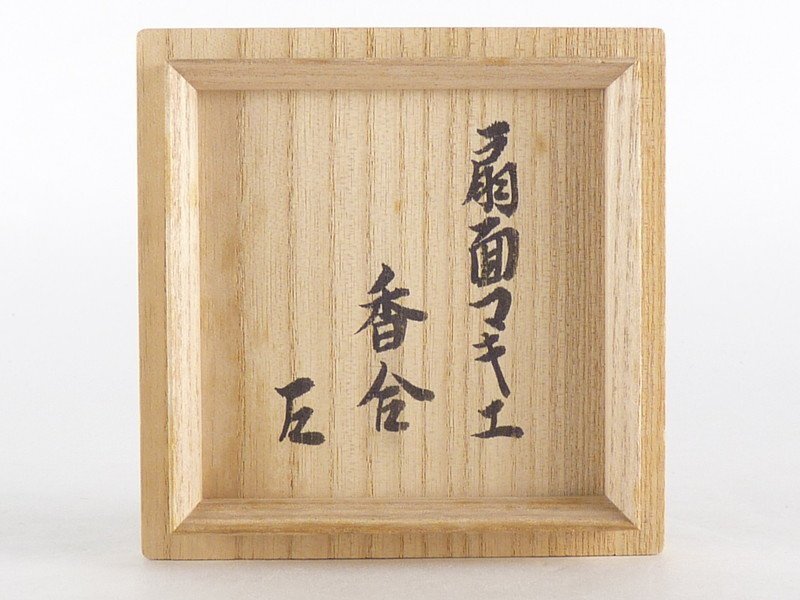 扇面マキエ
香合
左